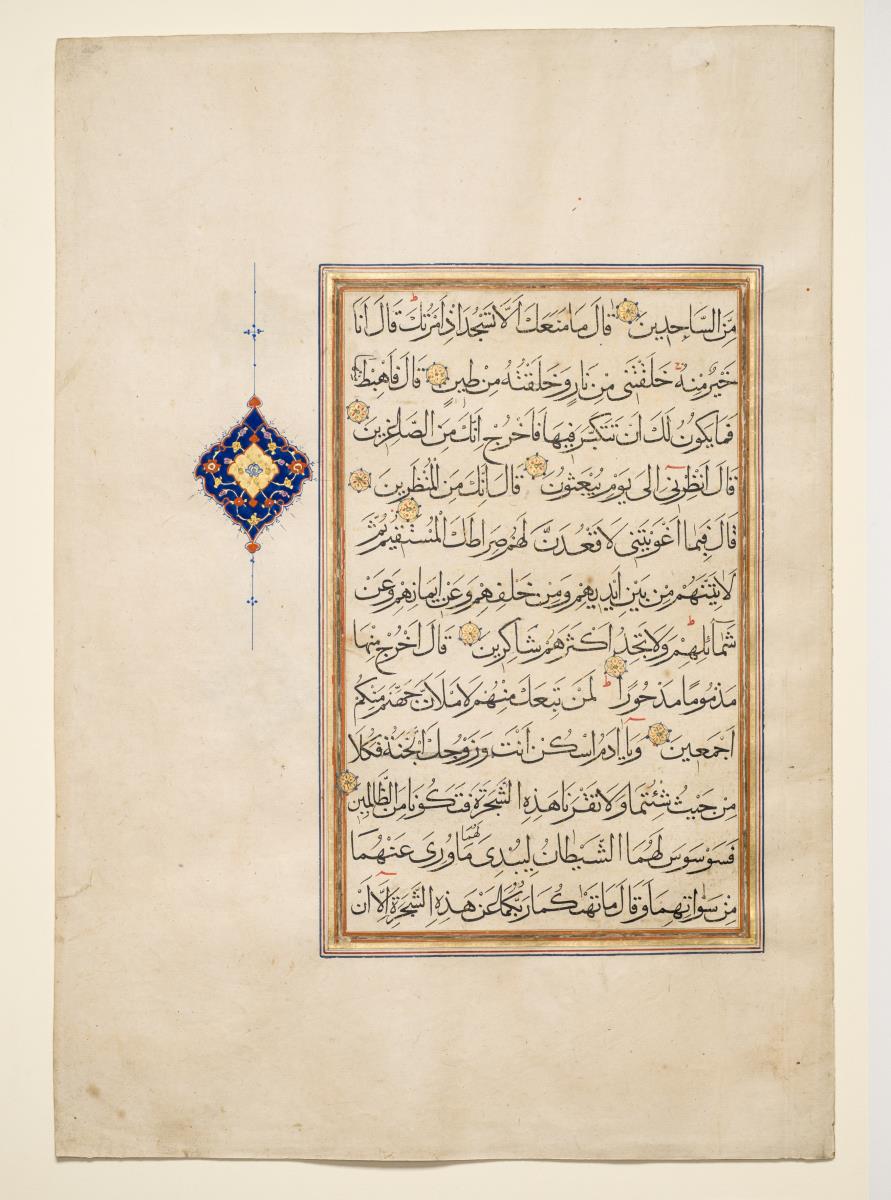 مِنَ السَّاجِدِينَ قَالَ مَا مَنَعَكَ اَلَّا تَسْجُدَ اِذْ اَمَرْتُكَ قَالَ اَنَا
خَيْرٌ مِنْهُ خَلَقْتَنِى مِنْ نَارٍ وَخَلَقْتَهُ مِنْ طِينٍ قَالَ فَاهْبِطْ مِنْهَا
فَمَا يَكُونُ لَكَ اَنْ تَتَكَبَّرَ فِيهَا فَاخْرُجْ اِنَّكَ مِنَ الصَّاغِرِينَ
قَالَ اَنْظِرْنِى اِلٰى يَوْمِ يُبْعَثُونَ قَالَ اِنَّكَ مِنَ الْمُنْظَرِينَ
قَالَ فَبِمَا اَغْوَيْتَنِى لَاَقْعُدَنَّ لَهُمْ صِرَاطَكَ الْمُسْتَقِيمَ ثُمَّ
لَاٰتِيَنَّهُمْ مِنْ بَيْنِ اَيْدِيهِمْ وَمِنْ خَلْفِهِمْ وَعَنْ اَيْمَانِهِمْ وَعَنْ
شَمَائِلِهِمْ وَلَا تَجِدُ اَكْثَرَهُمْ شَاكِرِينَ قَالَ اخْرُجْ مِنْهَا
مَذْمُومًا مَدْحُورًا لَمَنْ تَبِعَكَ مِنْهُمْ لَاَمْلَاَنَّ جَهَنَّمَ مِنْكُمْ
اَجْمَعِينَ وَيَا اٰدَمُ اسْكُنْ اَنْتَ وَزَوْجُكَ الْجَنَّةَ فَكُلَا
مِنْ حَيْثُ شِئْتُمَا وَلَا تَقْرَبَا هٰذِهِ الشَّجَرَةَ فَتَكُونَا مِنَ الظَّالِمِينَ
فَوَسْوَسَ لَهُمَا الشَّيْطَانُ لِيُبْدِىَ لَهُمَا مَا وُرِىَ عَنْهُمَا
مِنْ سَوْاٰتِهِمَا وَقَالَ مَا نَهٰىكُمَا رَبُّكُمَا عَنْ هٰذِهِ الشَّجَرَةِ اِلَّا اَنْ